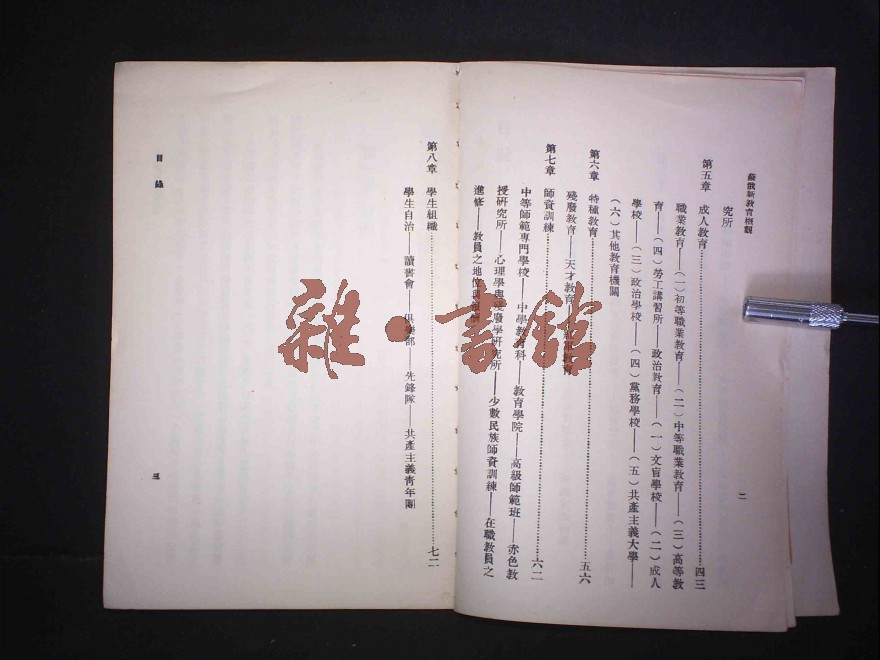 蘇俄新教育概觀
二
究所
第五章 成人教育……四三
職業教育——(一)初等職業教育——(二)中等職業教育——(三)高等教
育——(四)勞工講習所——政治教育——(一)文盲學校——(二)成人
學校——(三)政治學校——(四)黨務學校——(五)共產主義大學——
(六)其他教育機關
第六章 特種教育……五六
殘廢教育——天才教育
第七章 師資訓練……六二
中等師範專門學校——中學教育科——教育學院——高級師範班——赤色教
授研究所——心理學與殘廢學研究所——少數民族師資訓練——在職教員之
進修——教員之地位
第八章 學生組織……七二
學生自治——讀書會——俱樂部——先鋒隊——共產主義青年團
目錄
三
雜·書館